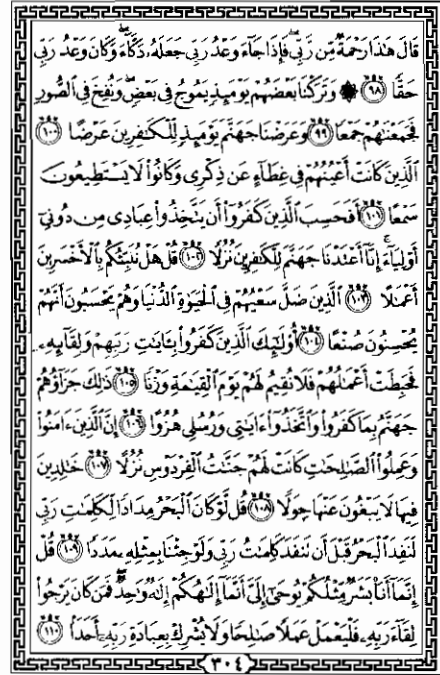 قَالَ هَٰذَا رَحْمَةٌ مِّن رَّبِّي ۖ فَإِذَا جَآءَ وَعْدُ رَبِّي جَعَلَهُۥ دَكَّآءَ ۖ وَكَانَ وَعْدُ رَبِّي
حَقًّا ﴿٩٨﴾ ۞ وَتَرَكْنَا بَعْضَهُمْ يَوْمَئِذٍ يَمُوجُ فِي بَعْضٍ ۖ وَنُفِخَ فِي ٱلصُّورِ
فَجَمَعْنَٰهُمْ جَمْعًا ﴿٩٩﴾ وَعَرَضْنَا جَهَنَّمَ يَوْمَئِذٍ لِّلْكَٰفِرِينَ عَرْضًا ﴿١٠٠﴾
ٱلَّذِينَ كَانَتْ أَعْيُنُهُمْ فِي غِطَآءٍ عَن ذِكْرِي وَكَانُوا۟ لَا يَسْتَطِيعُونَ
سَمْعًا ﴿١٠١﴾ أَفَحَسِبَ ٱلَّذِينَ كَفَرُوٓا۟ أَن يَتَّخِذُوا۟ عِبَادِي مِن دُونِيٓ
أَوْلِيَآءَ ۚ إِنَّآ أَعْتَدْنَا جَهَنَّمَ لِلْكَٰفِرِينَ نُزُلًا ﴿١٠٢﴾ قُلْ هَلْ نُنَبِّئُكُم بِٱلْأَخْسَرِينَ
أَعْمَٰلًا ﴿١٠٣﴾ ٱلَّذِينَ ضَلَّ سَعْيُهُمْ فِي ٱلْحَيَوٰةِ ٱلدُّنْيَا وَهُمْ يَحْسَبُونَ أَنَّهُمْ
يُحْسِنُونَ صُنْعًا ﴿١٠٤﴾ أُو۟لَٰٓئِكَ ٱلَّذِينَ كَفَرُوا۟ بِـَٔايَٰتِ رَبِّهِمْ وَلِقَآئِهِۦ
فَحَبِطَتْ أَعْمَٰلُهُمْ فَلَا نُقِيمُ لَهُمْ يَوْمَ ٱلْقِيَٰمَةِ وَزْنًا ﴿١٠٥﴾ ذَٰلِكَ جَزَآؤُهُمْ
جَهَنَّمُ بِمَا كَفَرُوا۟ وَٱتَّخَذُوٓا۟ ءَايَٰتِي وَرُسُلِي هُزُوًا ﴿١٠٦﴾ إِنَّ ٱلَّذِينَ ءَامَنُوا۟
وَعَمِلُوا۟ ٱلصَّٰلِحَٰتِ كَانَتْ لَهُمْ جَنَّٰتُ ٱلْفِرْدَوْسِ نُزُلًا ﴿١٠٧﴾ خَٰلِدِينَ
فِيهَا لَا يَبْغُونَ عَنْهَا حِوَلًا ﴿١٠٨﴾ قُل لَّوْ كَانَ ٱلْبَحْرُ مِدَادًا لِّكَلِمَٰتِ رَبِّي
لَنَفِدَ ٱلْبَحْرُ قَبْلَ أَن تَنفَدَ كَلِمَٰتُ رَبِّي وَلَوْ جِئْنَا بِمِثْلِهِۦ مَدَدًا ﴿١٠٩﴾ قُلْ
إِنَّمَآ أَنَا۠ بَشَرٌ مِّثْلُكُمْ يُوحَىٰٓ إِلَيَّ أَنَّمَآ إِلَٰهُكُمْ إِلَٰهٌ وَٰحِدٌ ۖ فَمَن كَانَ يَرْجُوا۟
لِقَآءَ رَبِّهِۦ فَلْيَعْمَلْ عَمَلًا صَٰلِحًا وَلَا يُشْرِكْ بِعِبَادَةِ رَبِّهِۦٓ أَحَدًۢا ﴿١١٠﴾
٣٠٤